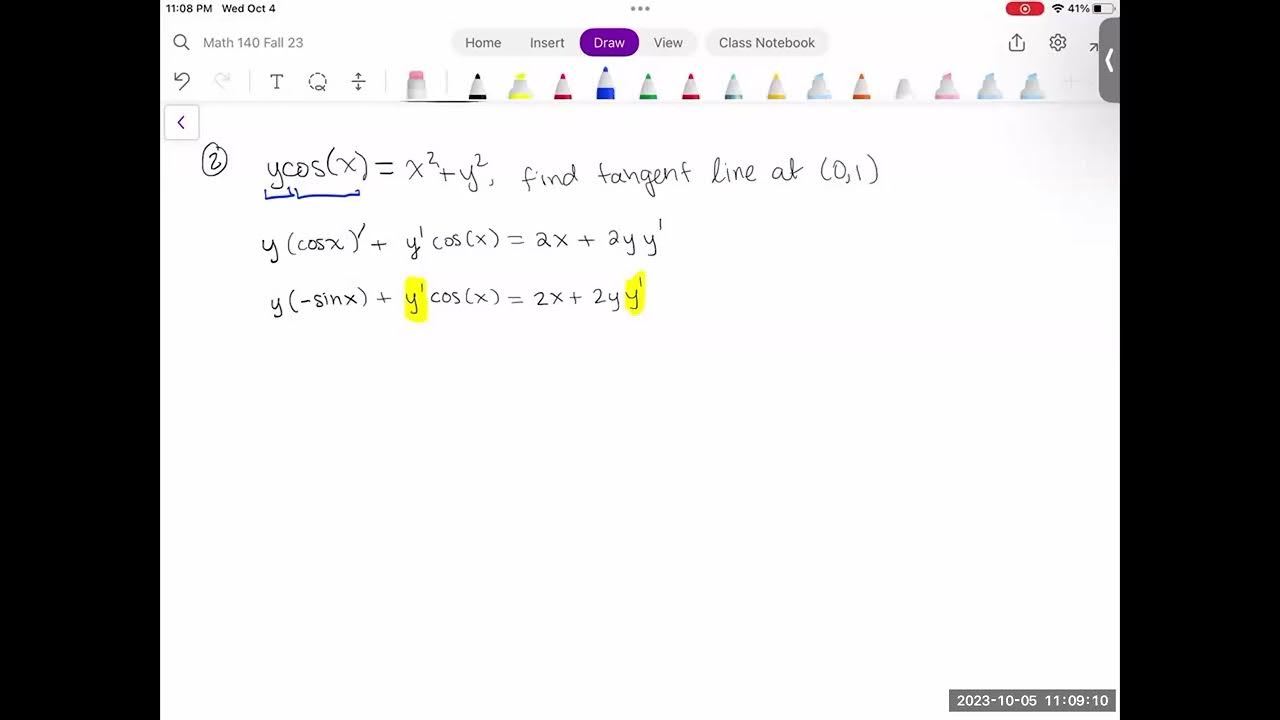 11:08 PM Wed Oct 4
41%
Math 140 Fall 23
Home Insert Draw View Class Notebook
T
② ycos(x) = x² + y², find tangent line at (0,1)
y(cosx)' + y' cos(x) = 2x + 2y y'
y(-sinx) + y' cos(x) = 2x + 2y y'
2023-10-05 11:09:10